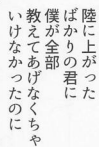 陸に上がった
ばかりの君に
僕が全部
教えてあげなくちゃ
いけなかったのに